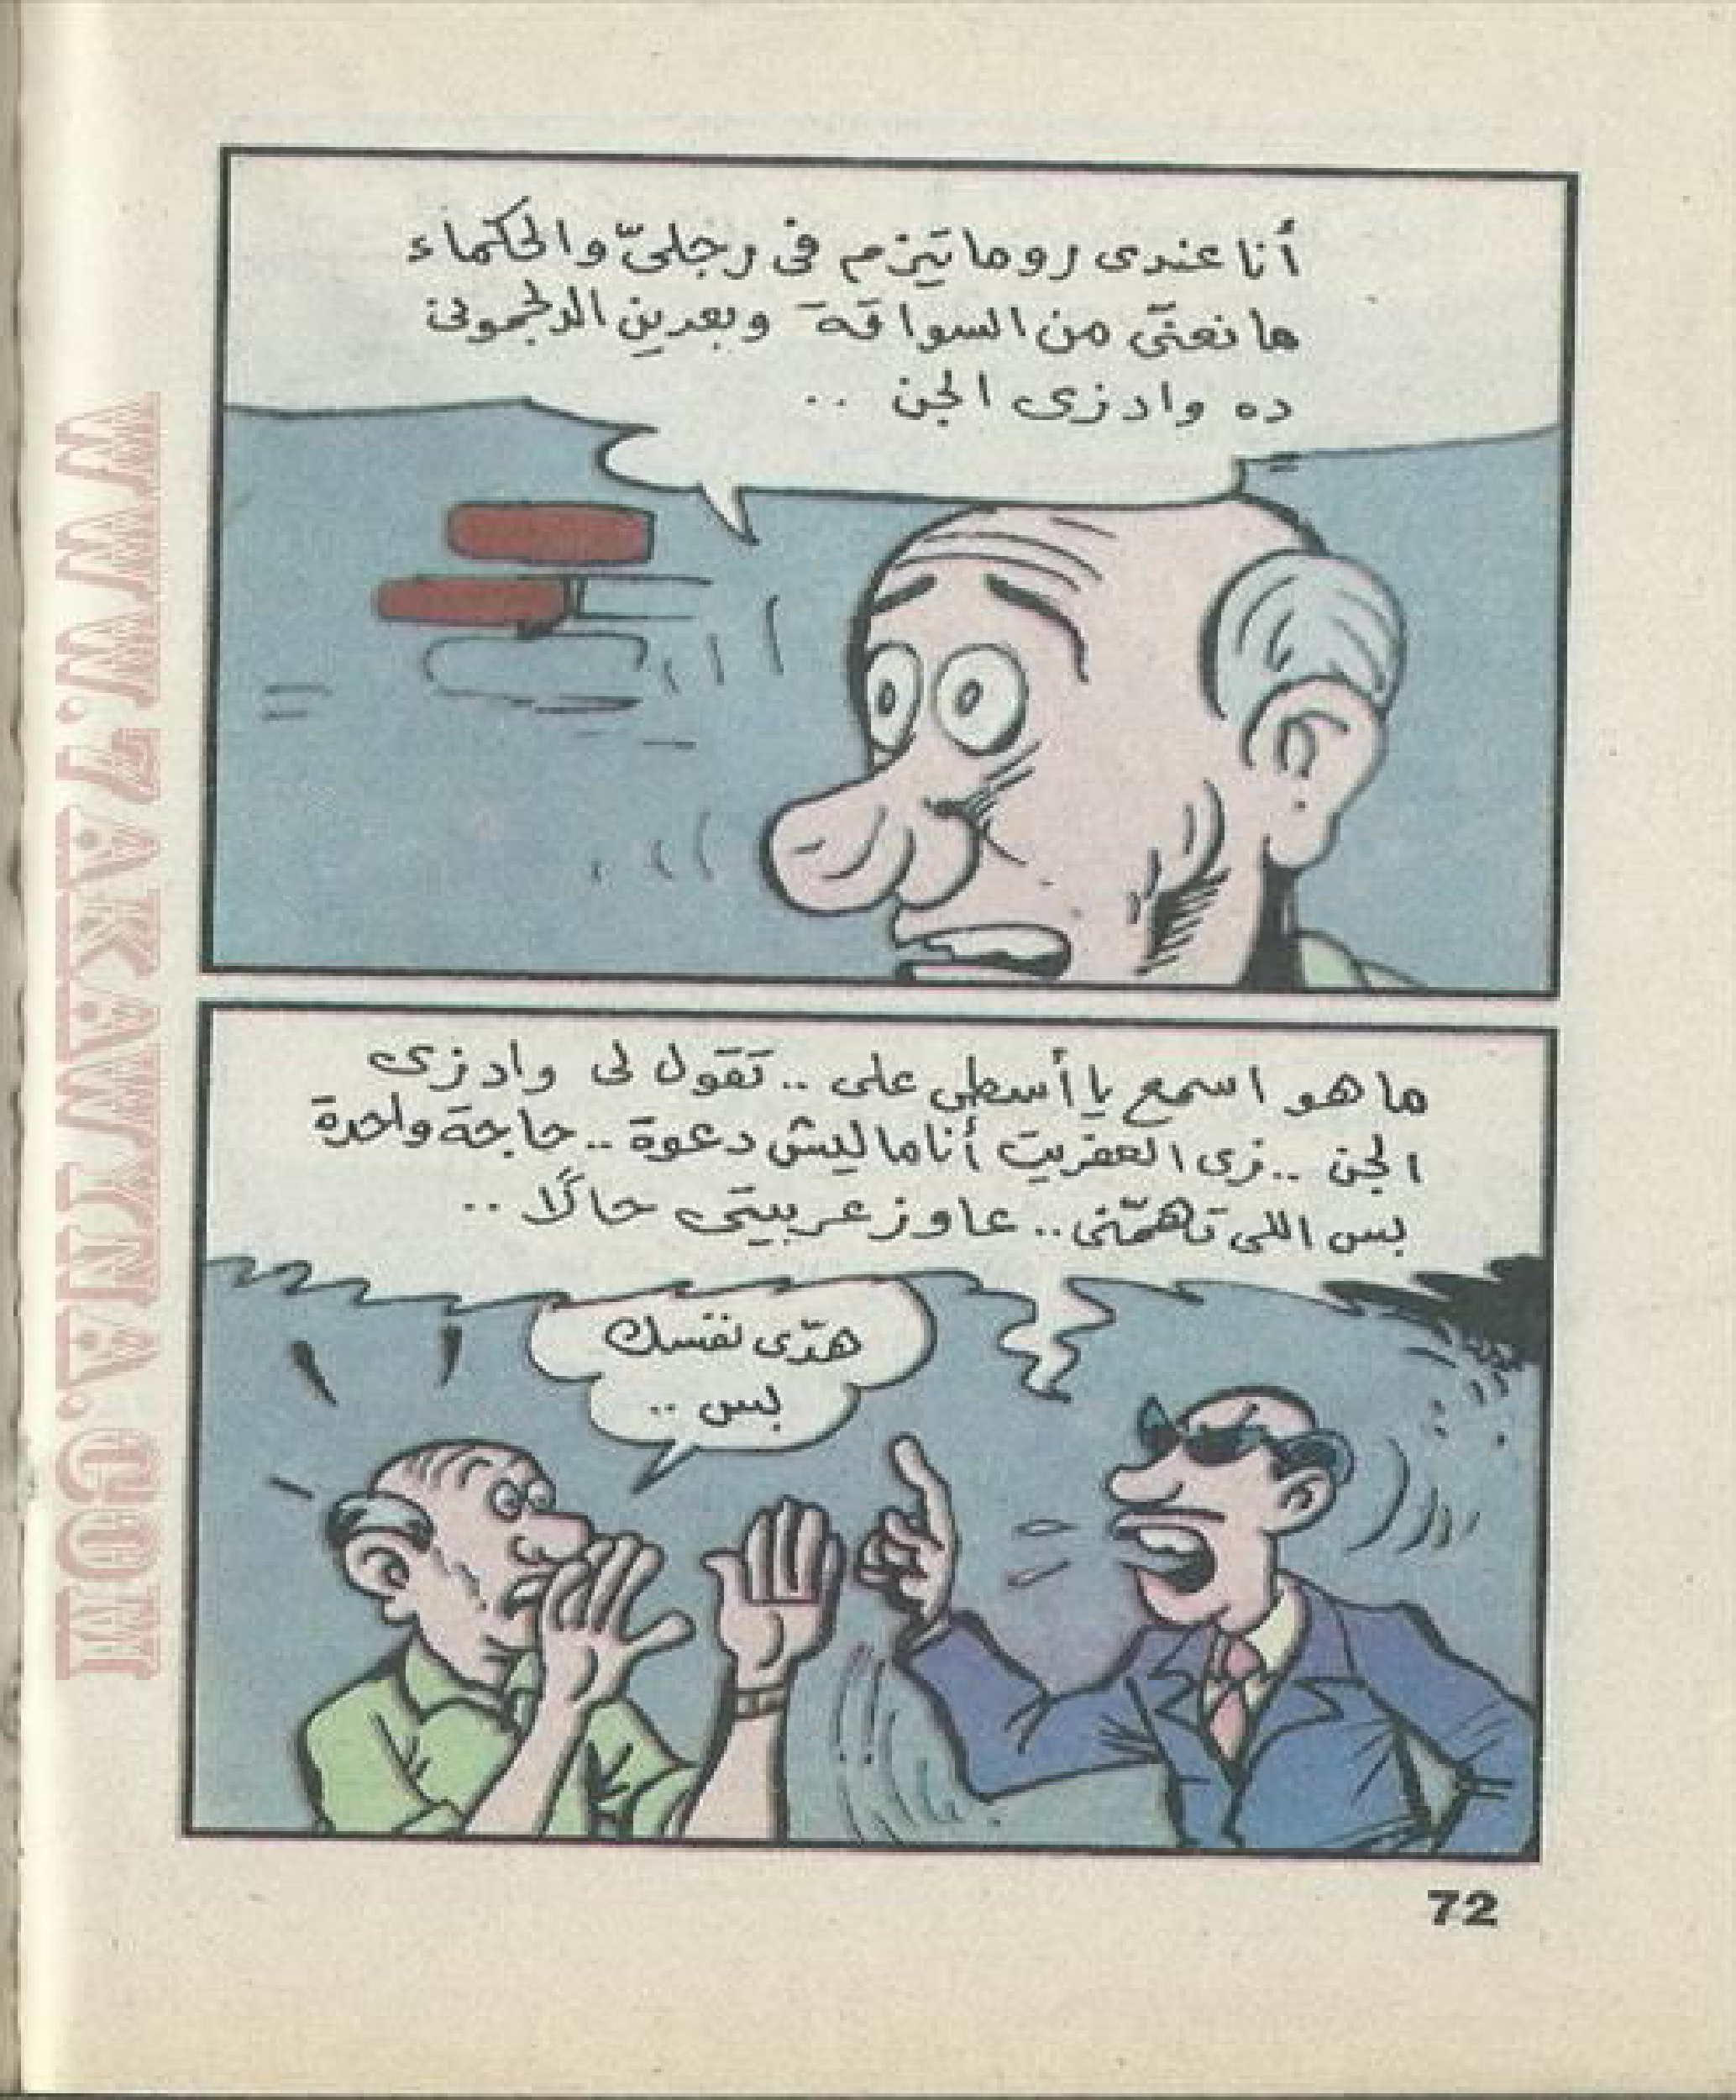 أنا عندى روماتيزم فى رجلىّ والحكماء
مانعنّى من السواقة وبعدين الدلجمونى
ده وادزى الجن ..
ماهو اسمع يا أسطى على .. تقول لى وادزى
الجن .. زى العفريت أنا ماليش دعوة .. حاجة واحدة
بس اللى تهمّنى .. عاوز عربيتى حالًا ..
هدّى نفسك
بس ..
72
WWW.7AKAWINA.COM